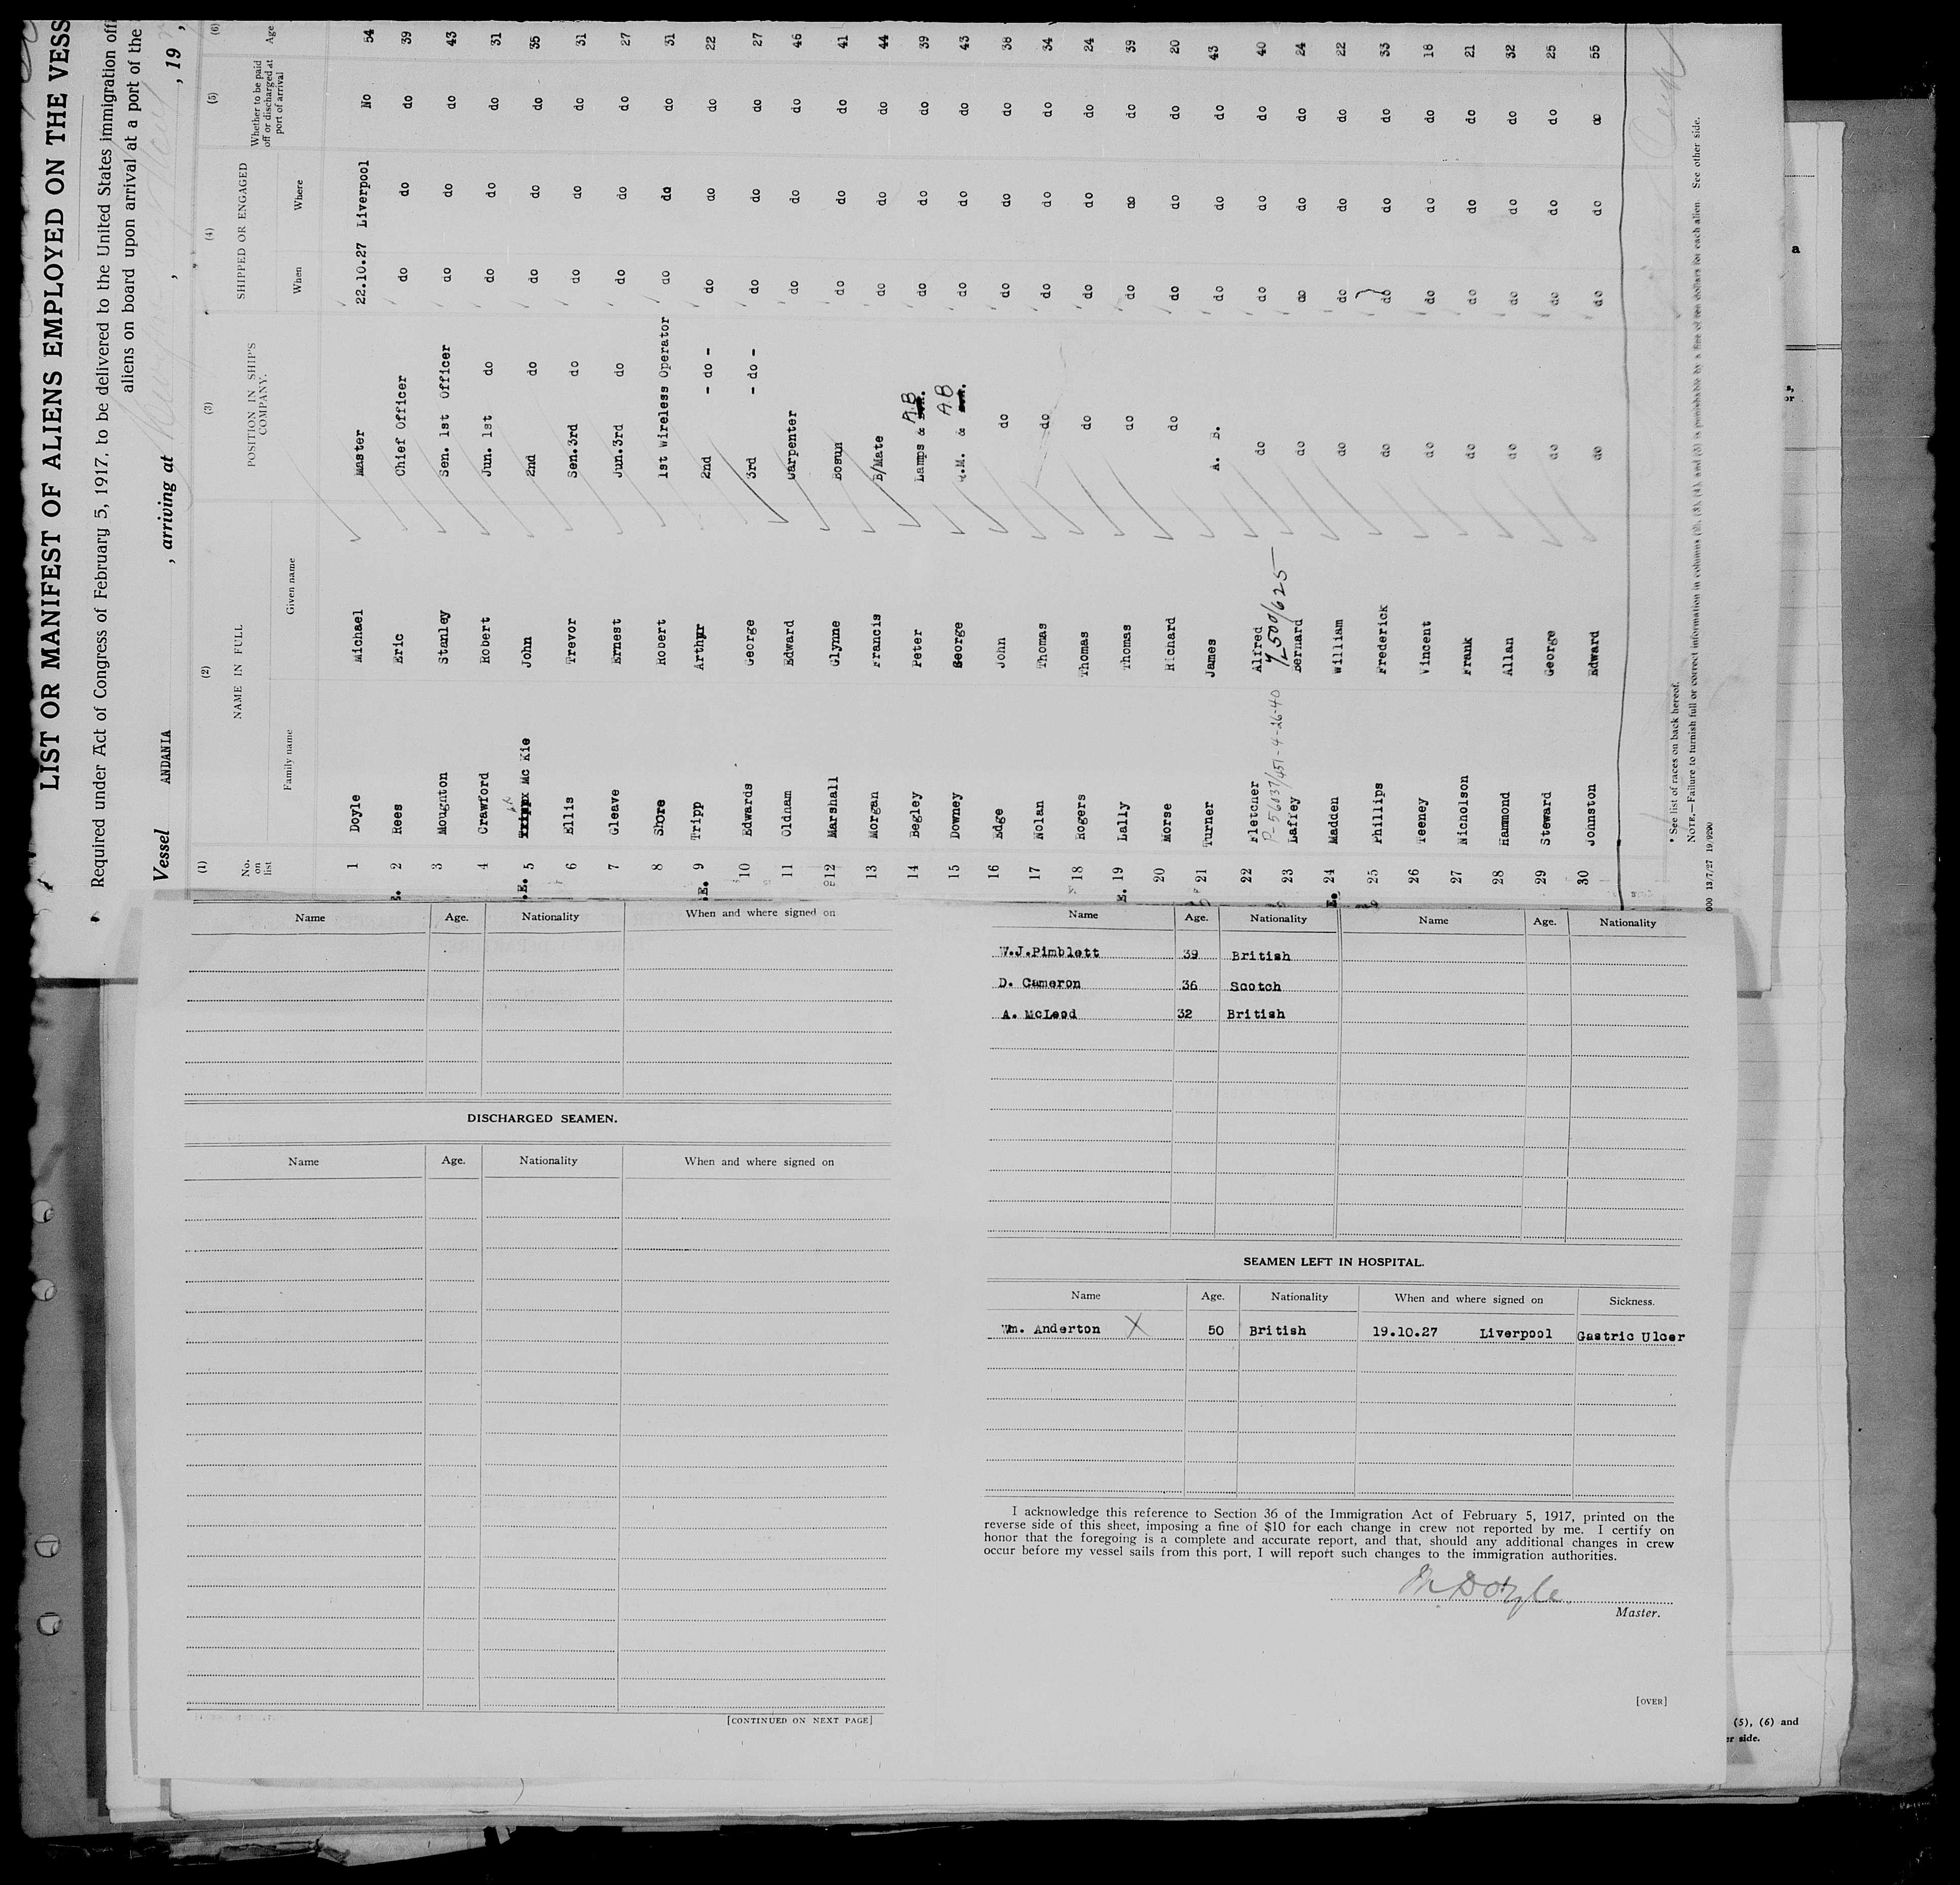 LIST OR MANIFEST OF ALIENS EMPLOYED ON THE VESS
Required under Act of Congress of February 5, 1917, to be delivered to the United States immigration offi
aliens on board upon arrival at a port of the
Vessel ANDANIA , arriving at , , 19 ,
(1) (2) (3) (4) (5) (6)
No. on list NAME IN FULL POSITION IN SHIP'S COMPANY. SHIPPED OR ENGAGED Whether to be paid off or discharged at port of arrival Age
Family name Given name When Where
1 Doyle Michael Master 22.10.27 Liverpool No 54
2 Rees Eric Chief Officer do do do 39
3 Moughton Stanley Sen. 1st Officer do do do 43
4 Crawford Robert Jun. 1st do do do do 31
5 Mc Kie John 2nd do do do do 35
6 Ellis Trevor Sen.3rd do do do do 31
7 Gleave Ernest Jun.3rd do do do do 27
8 Shore Robert 1st Wireless Operator do do do 31
9 Tripp Arthur 2nd - do - do do do 22
10 Edwards George 3rd - do - do do do 27
11 Oldham Edward Carpenter do do do 46
12 Marshall Glynne Bosun do do do 41
13 Morgan Francis B/Mate do do do 44
14 Begley Peter Lamps & A.B do do do 39
15 Downey George Q.M. & A.B do do do 43
16 Edge John do do do do 38
17 Nolan Thomas do do do do 34
18 Rogers Thomas do do do do 24
19 Lally Thomas do do do do 39
20 Morse Richard do do do do 20
21 Turner James A. B. do do do 43
22 Fletcher Alfred do do do do 40
23 Laffey Bernard do do do do 24
24 Madden William do do do do 22
25 Phillips Frederick do do do do 33
26 Teeney Vincent do do do do 18
27 Nicholson Frank do do do do 21
28 Hammond Allan do do do do 32
29 Steward George do do do do 25
30 Johnston Edward do do do do 55
* See list of races on back hereof.
NOTE.—Failure to turnish full or correct information in columns (2), (3), (4), and (5) is punishable by a fine of ten dollars for each alien. See other side.
Name Age. Nationality When and where signed on
DISCHARGED SEAMEN.
Name Age. Nationality When and where signed on
[CONTINUED ON NEXT PAGE]
Name Age. Nationality Name Age. Nationality
W.J.Pimblett 39 British
D. Cameron 36 Scotch
A. McLeod 32 British
SEAMEN LEFT IN HOSPITAL.
Name Age. Nationality When and where signed on Sickness.
Wm. Anderton X 50 British 19.10.27 Liverpool Gastric Ulcer
I acknowledge this reference to Section 36 of the Immigration Act of February 5, 1917, printed on the
reverse side of this sheet, imposing a fine of $10 for each change in crew not reported by me. I certify on
honor that the foregoing is a complete and accurate report, and that, should any additional changes in crew
occur before my vessel sails from this port, I will report such changes to the immigration authorities.
M Doyle
Master.
[OVER]
(5), (6) and
er side.